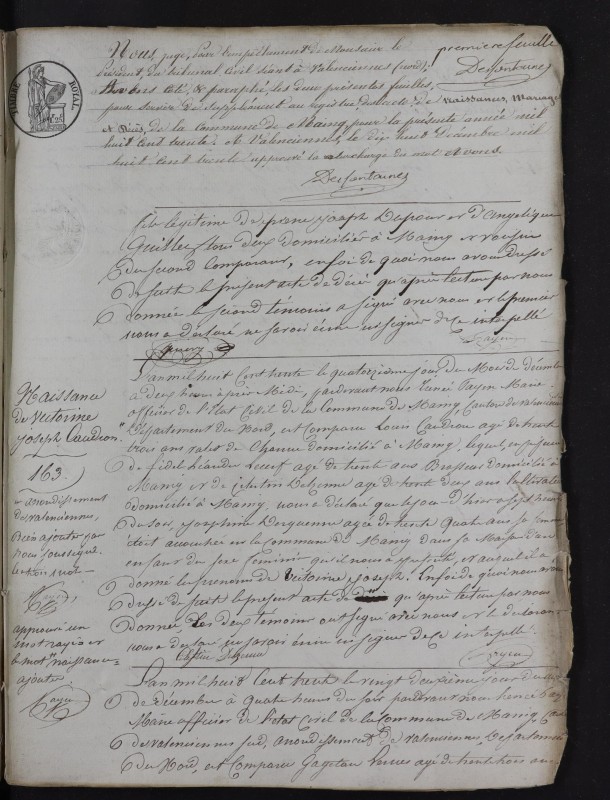 TIMBRE ROYAL
premiere feuille
Desfontaines
Nous, juge, pour l'empêchement de Monsieur le
Président, du tribunal Civil séant à Valenciennes (nord),
avons coté, & paraphé, les deux présentes feuilles,
pour servir de supplément au registre des actes de naissances, mariages
et décès, de la commune de Maing, pour la présente année mil
huit cent trente. à Valenciennes, le dix huit Décembre mil
huit cent trente approuvé la surcharge du mot
Desfontaines
fils légitime de pierre joseph Dufour et d'angélique
tous deux domiciliés à Maing et voisin
du second comparant, en foi de quoi nous avons dressé
de suite le présent acte de décès qu'après lecture par nous
donnée le second témoins a signé avec nous et le premier
nous a déclaré ne savoir écrire ni signer de ce interpellé
Payen
Naissance
de Victoire
joseph Caudron
163.
L'an mil huit Cent trente le quatorzième jour du Mois de décembre
à deux heures après Midi, pardevant nous Payen Maire
officier de l'Etat Civil de la Commune de Maing, Canton de valenciennes
Département du Nord, est comparu Louis Caudron agé de trente
trois ans valet de Charrue Domicilié à Maing, lequel, en présence
de fidel agé de trente ans Brasseur domicilié à
Maing et de Célestin agé de trente deux ans
domicilié à Maing, nous a déclaré que le jour d'hier à sept heures
du soir, Josephine agée de trente quatre ans sa femme
étoit accouchée en la commune de Maing dans sa Maison d'un
enfant du sexe féminin qu'il nous a présenté, et auquel il a
donné les prénoms de Victoire, joseph. En foi de quoi nous avons
dressé de suite le présent acte de qu'après lecture par nous
donnée les deux témoins ont signé avec nous et le déclarant
nous a déclaré ne savoir écrire ni signer de ce interpellé.
Payen
arrondissement
de valenciennes,
ajouté par
nous soussigné
Payen
approuvé un
mot rayé et
le mot naissance
ajouté
Payen
L'an mil huit Cent trente le vingt deuxième jour du mois
de décembre à quatre heures du soir pardevant nous
Maire officier de l'état civil de la commune de Maing, Canton
de valenciennes sud, arrondissement de valenciennes, Département
du Nord, est comparu agé de trente trois ans